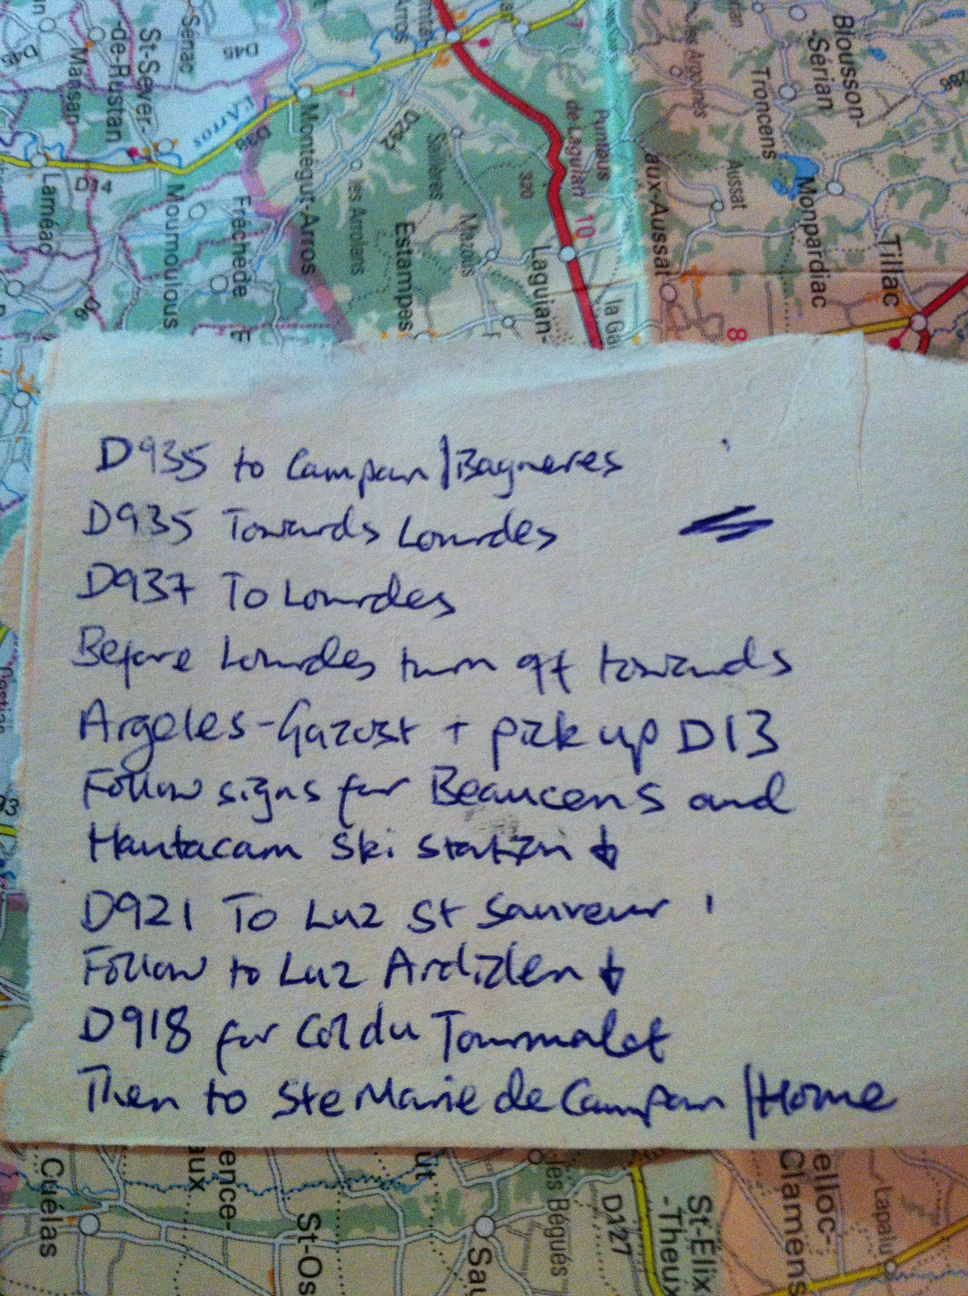 Sénac
St-Sever-
-de-Rustan
Mansan
D45
D45
l'Arros
Montégut-Arros
7
Laméac
D14
Moumoulous
Fréchède
les Arrolais
Estampes
D252
Sadières
Mazous
320
Puntous
de Laguian
10
Laguian-
la Ga
aux-Aussat
Aussat
Troncens
Blousson-
-Sérian
Monpardiac
Tillac
8
7
D935 to Campan/Bagneres
D935 Towards Lourdes
D937 To Lourdes
Before Lourdes turn off towards
Argeles-Gazost + pick up D13
Follow signs for Beaucens and
Hautacam Ski station ↓
D921 To Luz St Sauveur
Follow to Luz Ardiden ↓
D918 for Col du Tourmalet
Then to Ste Marie de Campan/Home
Cuélas
aux
ence-
St-Os
ut
Sau
les Bégués
D127
St-Élix
-Theux
elloc-
Clamens
Lapalu